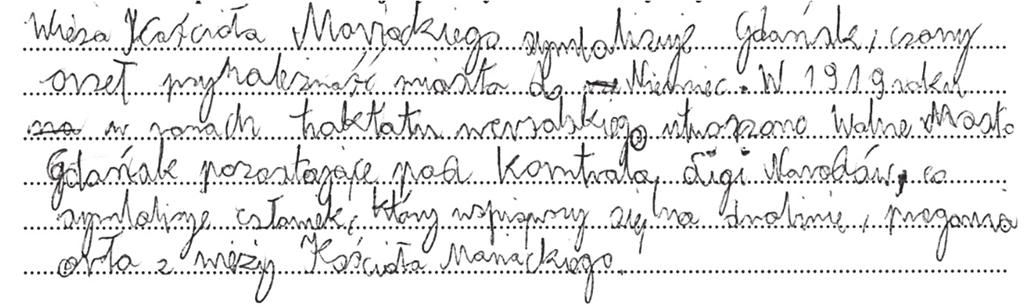 Wieża Kościoła Mariackiego symbolizuje Gdańsk, czarny
orzeł przynależność miasta do Niemiec. W 1919 roku
w ramach traktatu wersalskiego utworzono Wolne Miasto
Gdańsk pozostające pod kontrolą Ligi Narodów, co
symbolizuje człowiek, który wspinający się na drabinie, przegania
orła z wieży Kościoła Mariackiego.